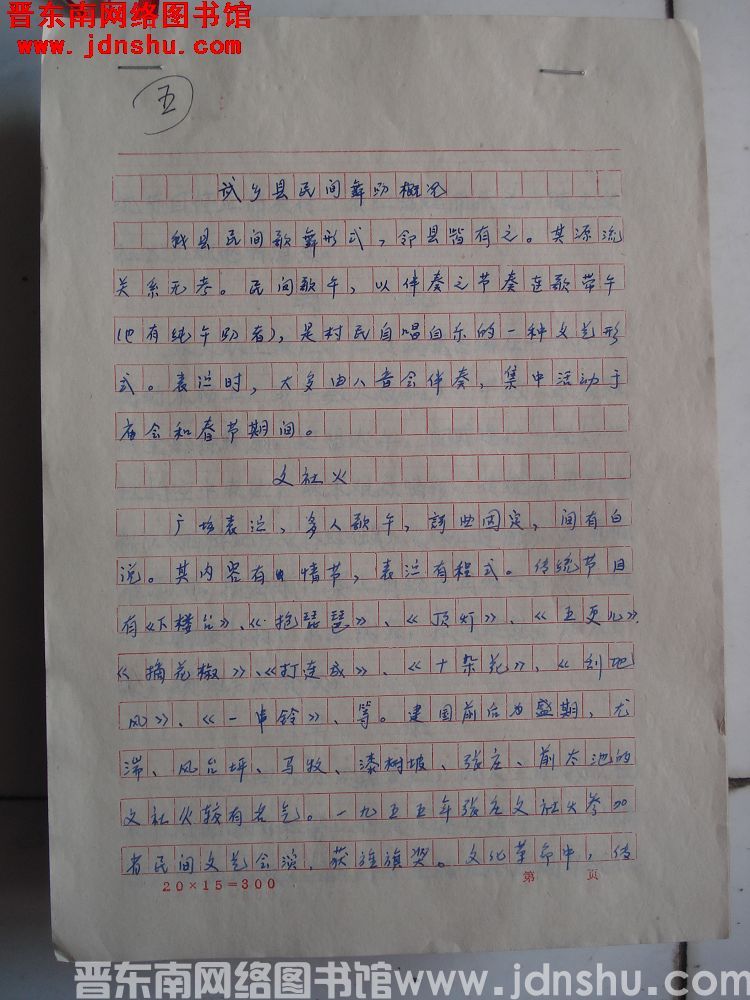 晋东南网络图书馆
www.jdnshu.com
五
武乡县民间舞蹈概况
我县民间歌舞形式，邻县皆有之。其源流
关系无考。民间歌午，以伴奏之节奏连歌带午
(也有纯午助者)，是村民自唱自乐的一种文艺形
式。表演时，大多由八音会伴奏，集中活动于
庙会和春节期间。
文社火
广场表演，多人歌午，詞曲固定，间有白
说。其内容有情节，表演有程式。传统节目
有《下楼台》、《抱琵琶》、《顶灯》、《五更儿》、
《摘花椒》、《打连成》、《十杂花》、《刮地
风》、《一串铃》、等。建国前后为盛期，尤
湍、风台坪、马牧、漆树坡、张庄、前太池的
文社火较有名气。一九五五年张庄文社火参加
省民间文艺会演，获锦旗奖。文化革命中，传
20×15=300
第 页
晋东南网络图书馆www.jdnshu.com